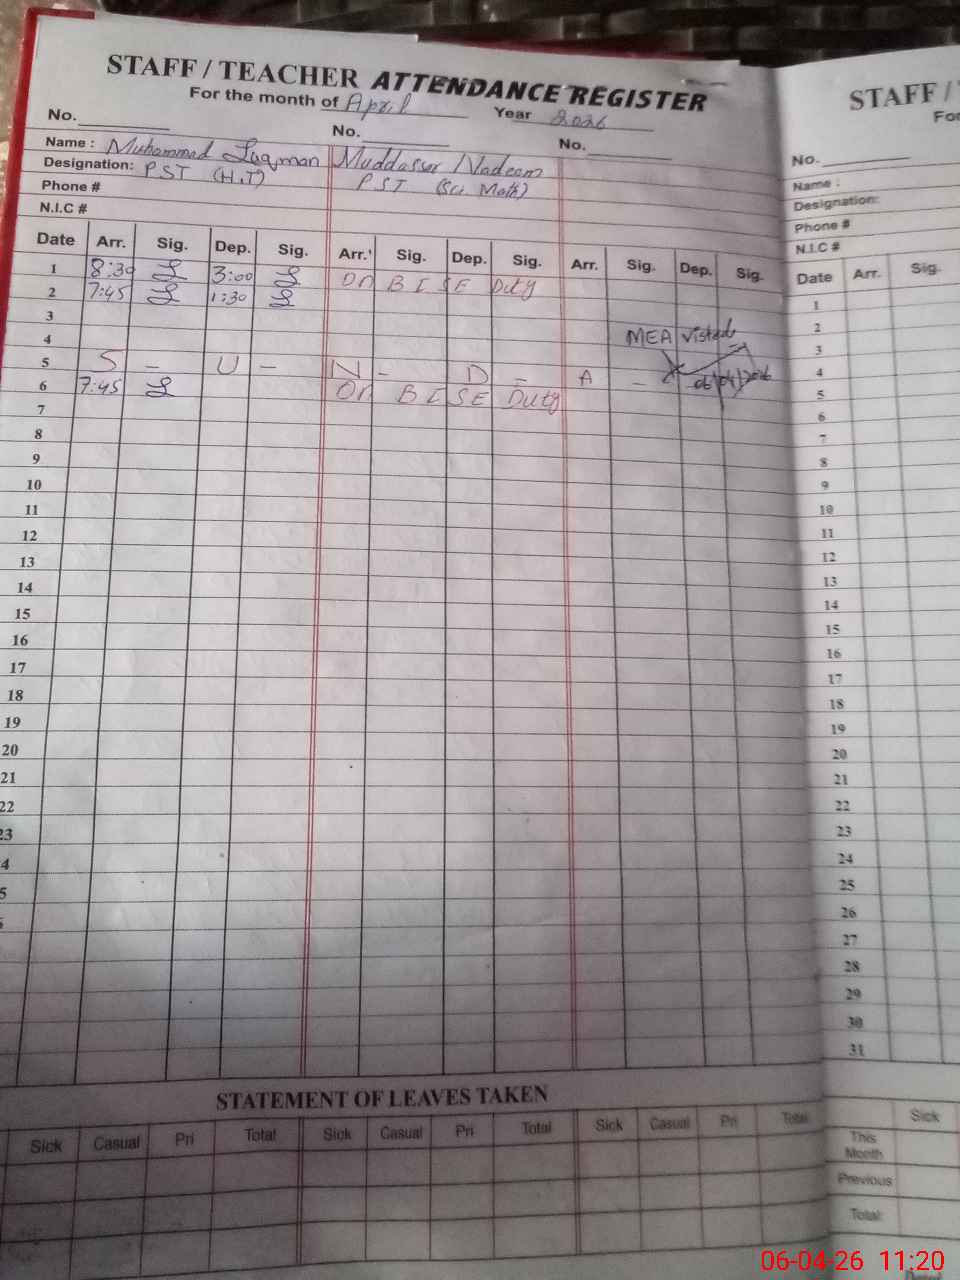 STAFF / TEACHER ATTENDANCE REGISTER
For the month of April Year 2026
No. No. No.
Name : Muhammad Luqman Muddassar Nadeem
Designation: PST (H.T) PST (Sci. Math)
Phone #
N.I.C #
Date Arr. Sig. Dep. Sig. Arr. Sig. Dep. Sig. Arr. Sig. Dep. Sig.
1 8:30 3:00 On BISE Duty
2 7:45 1:30
3
4 MEA Visted
5 S - U - N - D - A -
06/04/2026
6 7:45 On BISE Duty
7
8
9
10
11
12
13
14
15
16
17
18
19
20
21
22
23
4
5
STATEMENT OF LEAVES TAKEN
Sick Casual Pri Total Sick Casual Pri Total Sick Casual Pri Total
STAFF /
No.
Name :
Designation:
Phone #
N.I.C #
Date Arr. Sig.
1
2
3
4
5
6
7
8
9
10
11
12
13
14
15
16
17
18
19
20
21
22
23
24
25
26
27
28
29
30
31
Sick
This Month
Previous
Total:
06-04-26 11:20